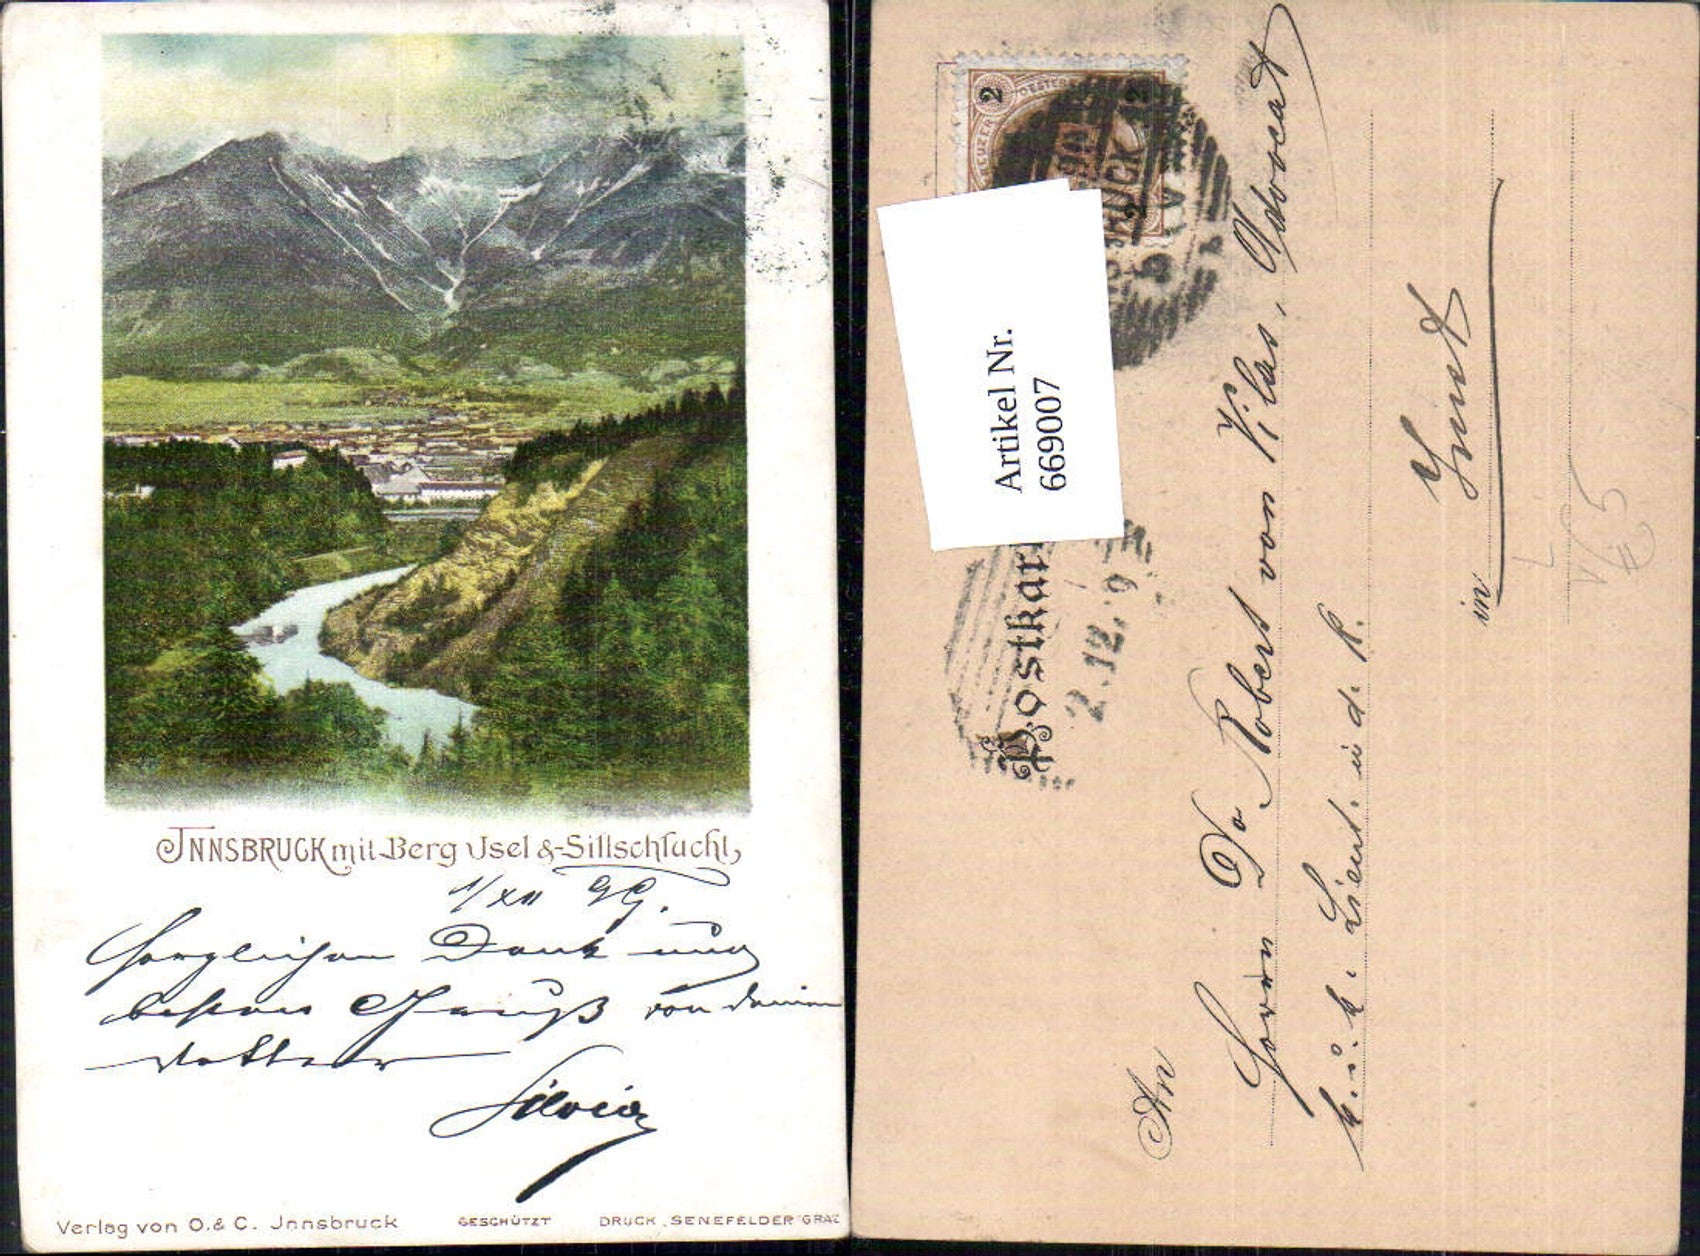 INNSBRUCK mit Berg Isel & Sillschlucht
1/XII 99.
Herzlichen Dank und
besten Gruß von deinem
Vetter
Silvio
Verlag von O. & C. Innsbruck
GESCHÜTZT
DRUCK „SENEFELDER" GRAZ
2
KREUZER
2.12.9
Artikel Nr.
669007
Postkar
An
Herrn Dr Robert von Vilas, Advocat
k. u. k. Lieut. i. d. R.
in